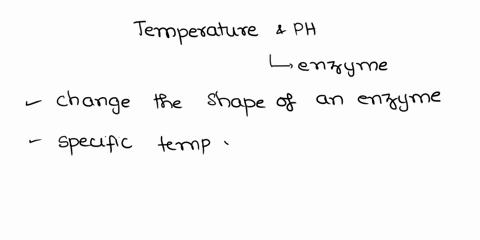 Temperature & PH
↳ enzyme
- change the shape of an enzyme
- specific temp